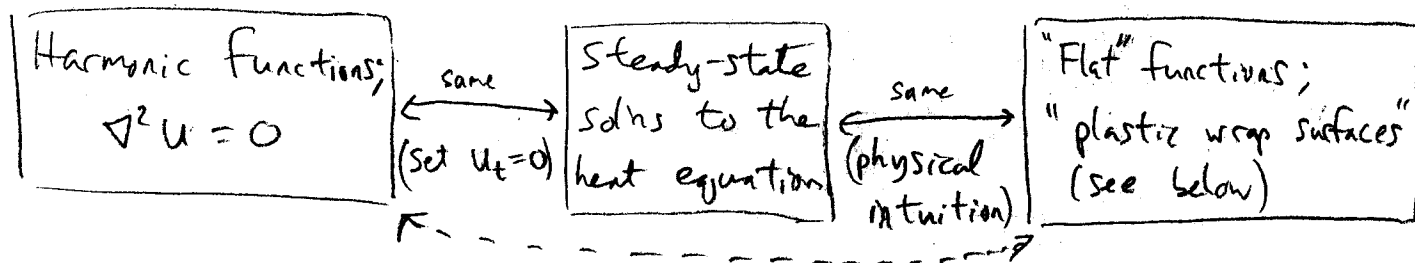 Harmonic functions;
∇²u = 0
same
(set uₜ=0)
Steady-state
solns to the
heat equation
same
(physical
intuition)
"Flat" functions;
"plastic wrap surfaces"
(see below)